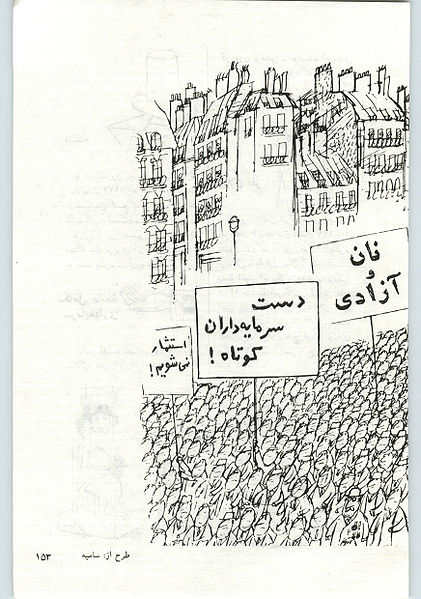 نان
و
آزادی
دست
سرمایه‌داران
کوتاه!
استثمار
نمی‌شویم!
طرح از: سامپه
۱۵۳